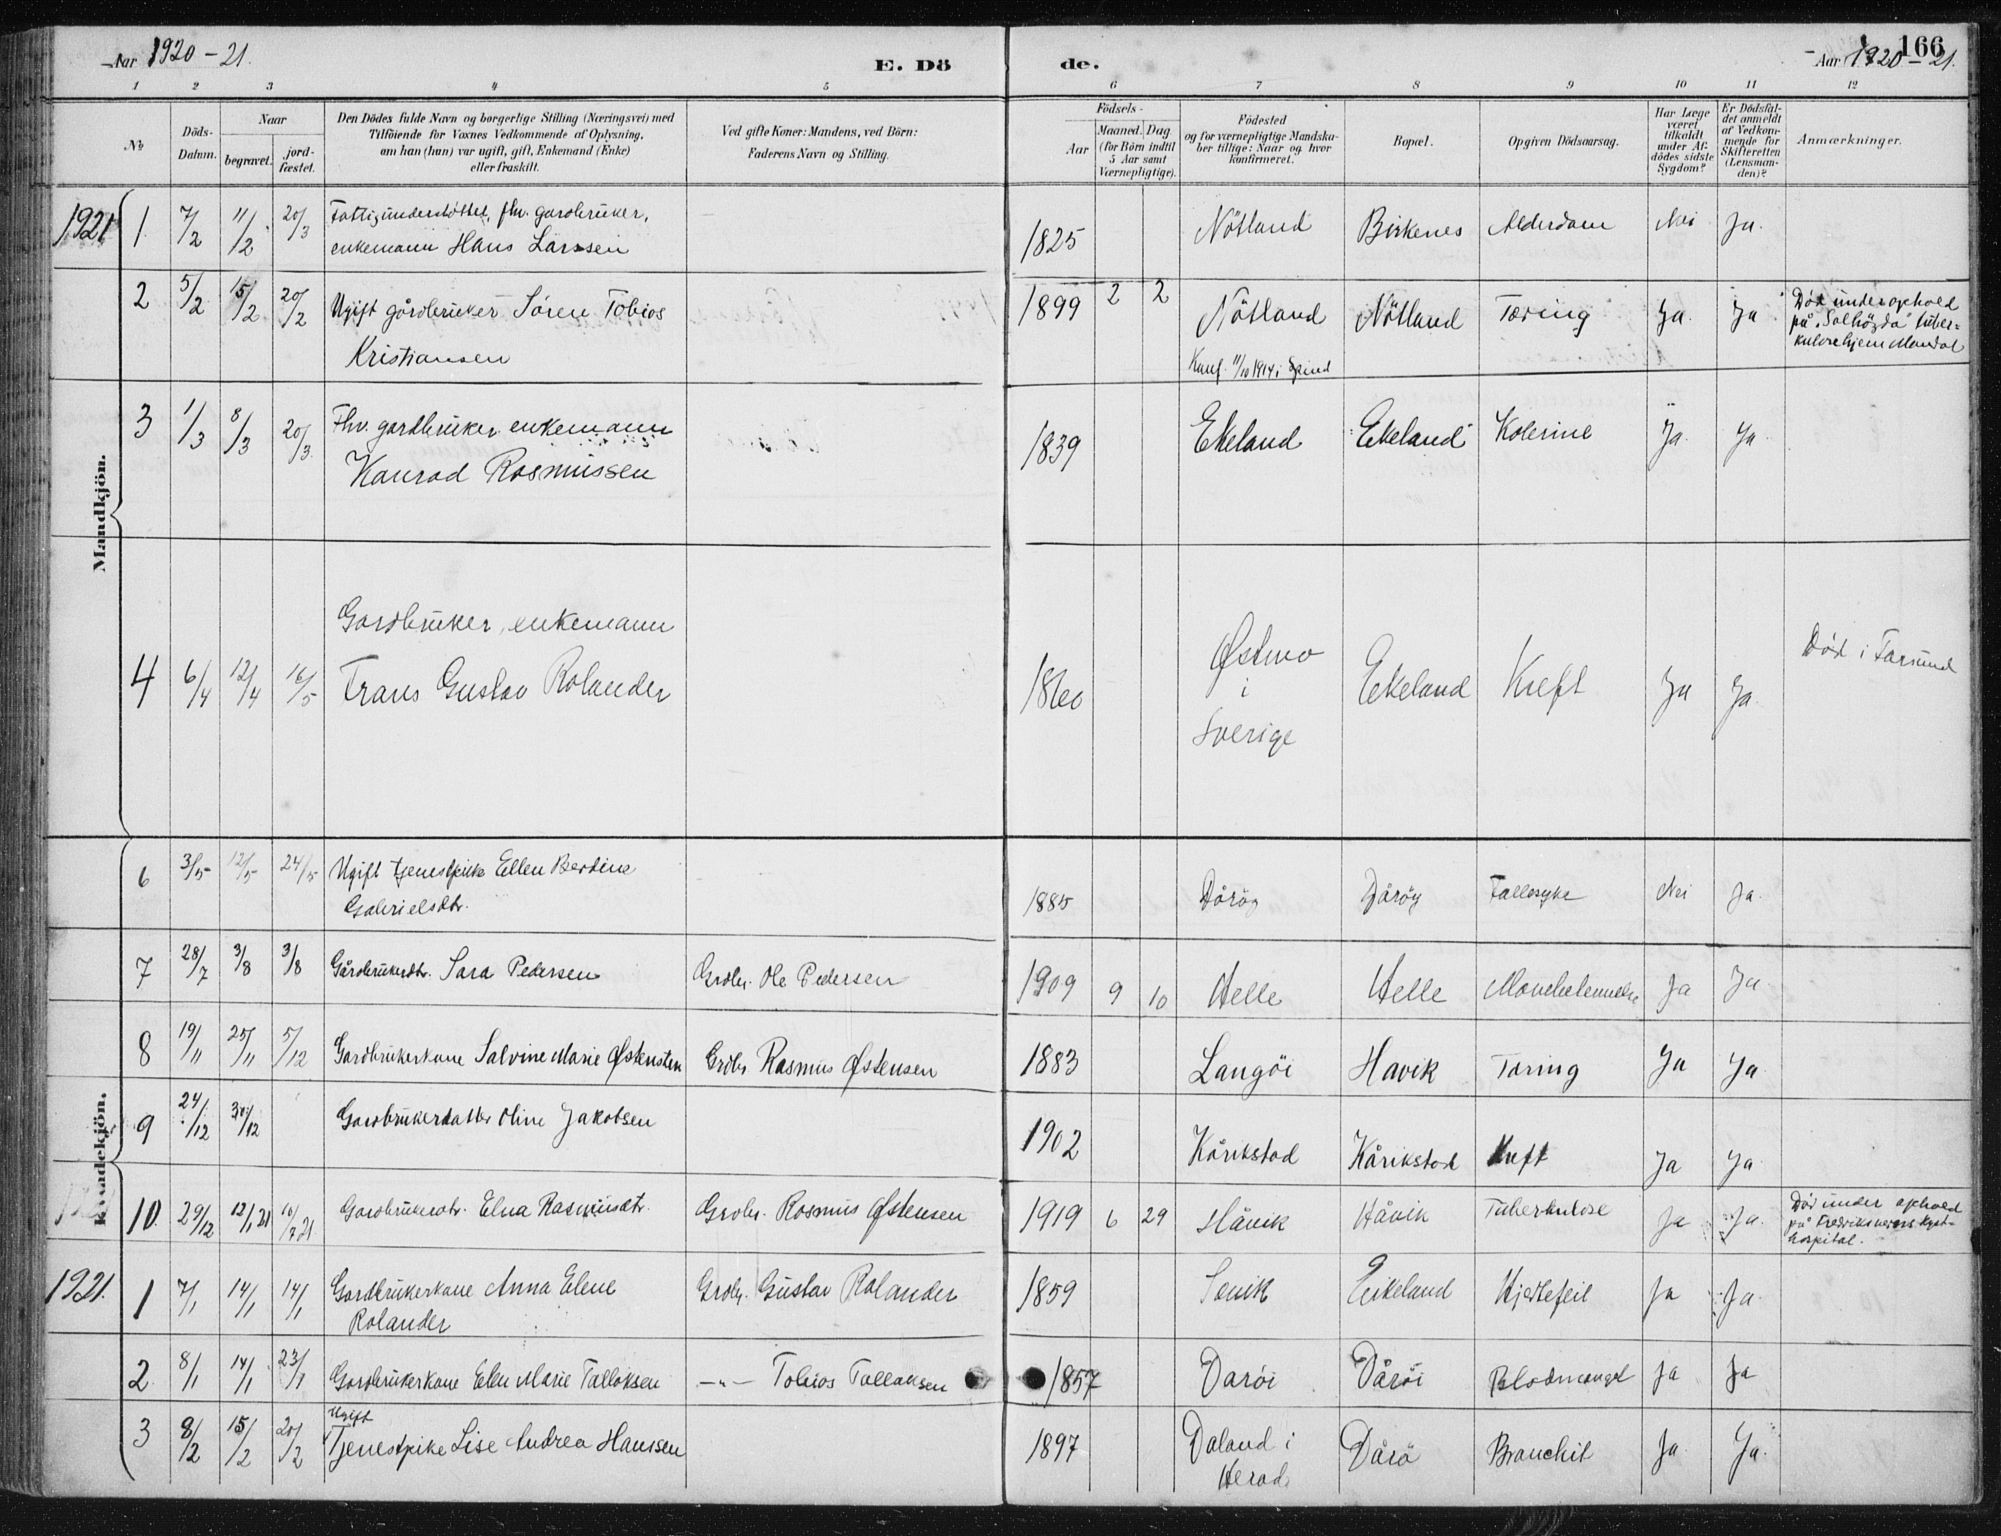 Aar 1920-21.
E. Dö
de.
166
Aar 1920-21.
1 2 3 4 5 6 7 8 9 10 11 12
№
Döds-Datum.
Naar
begravet.
jord-fæstet.
Den Dödes fulde Navn og borgerlige Stilling (Næringsvei) med
Tilföiende for Voxnes Vedkommende af Oplysning,
om han (hun) var ugift, gift, Enkemand (Enke)
eller fraskilt.
Ved gifte Koner: Mandens, ved Börn:
Faderens Navn og Stilling.
Födsels-
Aar
Maaned. Dag
(for Börn indtil
5 Aar samt
Værnepligtige).
Födested
og for værnepligtige Mandska-
ber tillige: Naar og hvor
konfirmeret.
Bopæl.
Opgiven Dödsaarsag.
Har Læge
været
tilkaldt
under Af-
dödes sidste
Sygdom?
Er Dödsfal-
det anmeldt
af Vedkom-
mende for
Skifteretten
(Lensman-
den)?
Anmærkninger.
Mandkjön.
1921 1. 7/2 11/2 20/3 Fattigunderstöttet, fhv. gardbruker,
enkemann Hans Larssen 1825 Nötland Birkenes Alderdom Nei Ja.
2 5/2 15/2 20/2 Ugift gårdbruker Sören Tobias
Kristiansen 1899 2 2 Nötland Nötland Tæring Ja. Ja
Konf. 11/10 1914 i Spind
Död under ophold
på "Solhögda" tuber-
kulosehjem Mandal
3 1/3 8/3 20/3. Fhv. gardbruker enkemann
Konrad Rasmussen 1839 Ekeland Ekeland Kolerine Ja. Ja.
4 6/4 12/4 16/5 Gardbruker, enkemann
Frans Gustav Rolander 1860 Østmo
i
Sverige Ekeland Kreft Ja Ja. Död i Farsund
Kvindekjön.
6 3/5 12/5 24/5 Ugift tjenestpike Ellen Bertine
Gabrielsdtr. 1885 Dåröy Dåröy Fallesyke Nei Ja.
7 28/7 3/8 3/8 Gårdbrukerdtr. Sara Pedersen Grdbr. Ole Pedersen 1909 9 10 Helle Helle Ja Ja.
8 19/11 25/11 5/12 Gardbrukerkone Salvine Marie Østensen Grdbr Rasmus Østensen 1883 Langöi Havik Tæring Ja Ja
9 24/12 30/12 Gardbrukerdatter Oline Jakobsen 1902 Kårikstad Kårikstad Kreft Ja Ja.
10. 29/12 12/1 21 10/7 21. Gardbrukerdtr. Elna Rasmusdtr. Grdbr. Rasmus Østensen 1919 6 29 Håvik Håvik Tuberkulose Ja Ja.
Död under ophold
på Fredriksværns kyst-
hospital.
1921. 1 7/1 14/1 14/1 Gardbrukerkone Anna Elene
Rolander Grdbr. Gustav Rolander 1859 Eikeland Hjertefeil Ja Ja.
2. 8/1 14/1 23/1 Gardbrukerkone Elen Marie Talloksen -"- Tobias Talloksen 1857 Daröi Dåröi Blodmangel Ja Ja
3 8/2 15/2 20/2 Ugift
Tjenestpike Lise Andrea Hanssen 1897 Daland i
Herad Dårö Bronchit Ja. Ja.